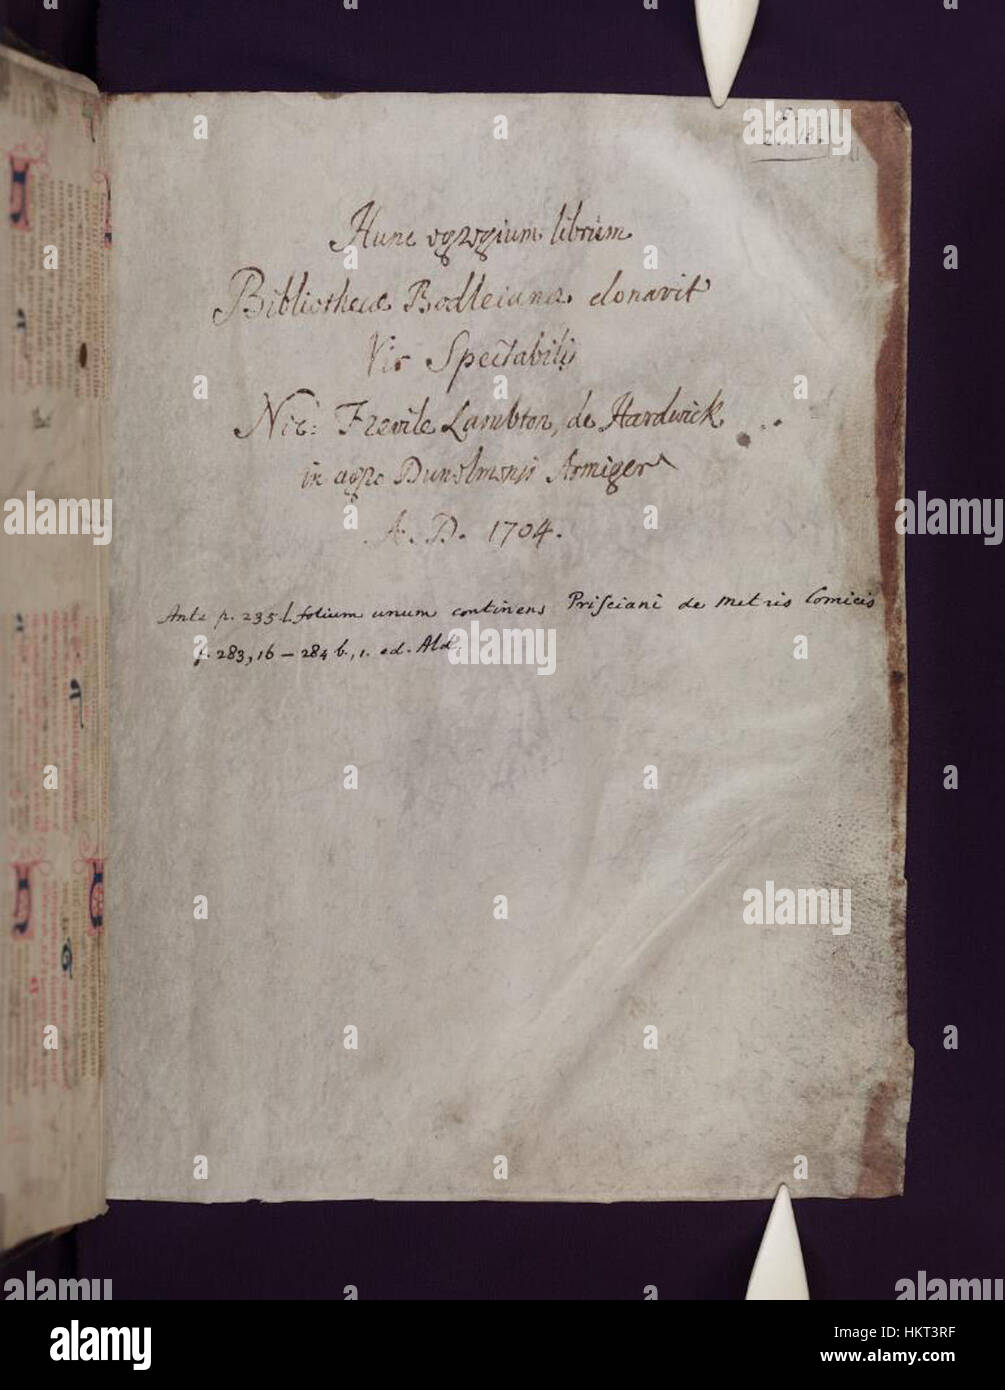 Hunc egregium librum
Bibliothecæ Bodleianæ donavit
Vir Spectabilis
Nic: Frevile Lambton, de Hardwick
in agro Dunelmensi Armiger
A. D. 1704.
Ante p. 235 folium unum continens Prisciani de Metris Comicis
p. 283, 16 – 284 b, 1. ed. Ald.
alamy
alamy
alamy
alamy
alamy
Image ID: HKT3RF
www.alamy.com